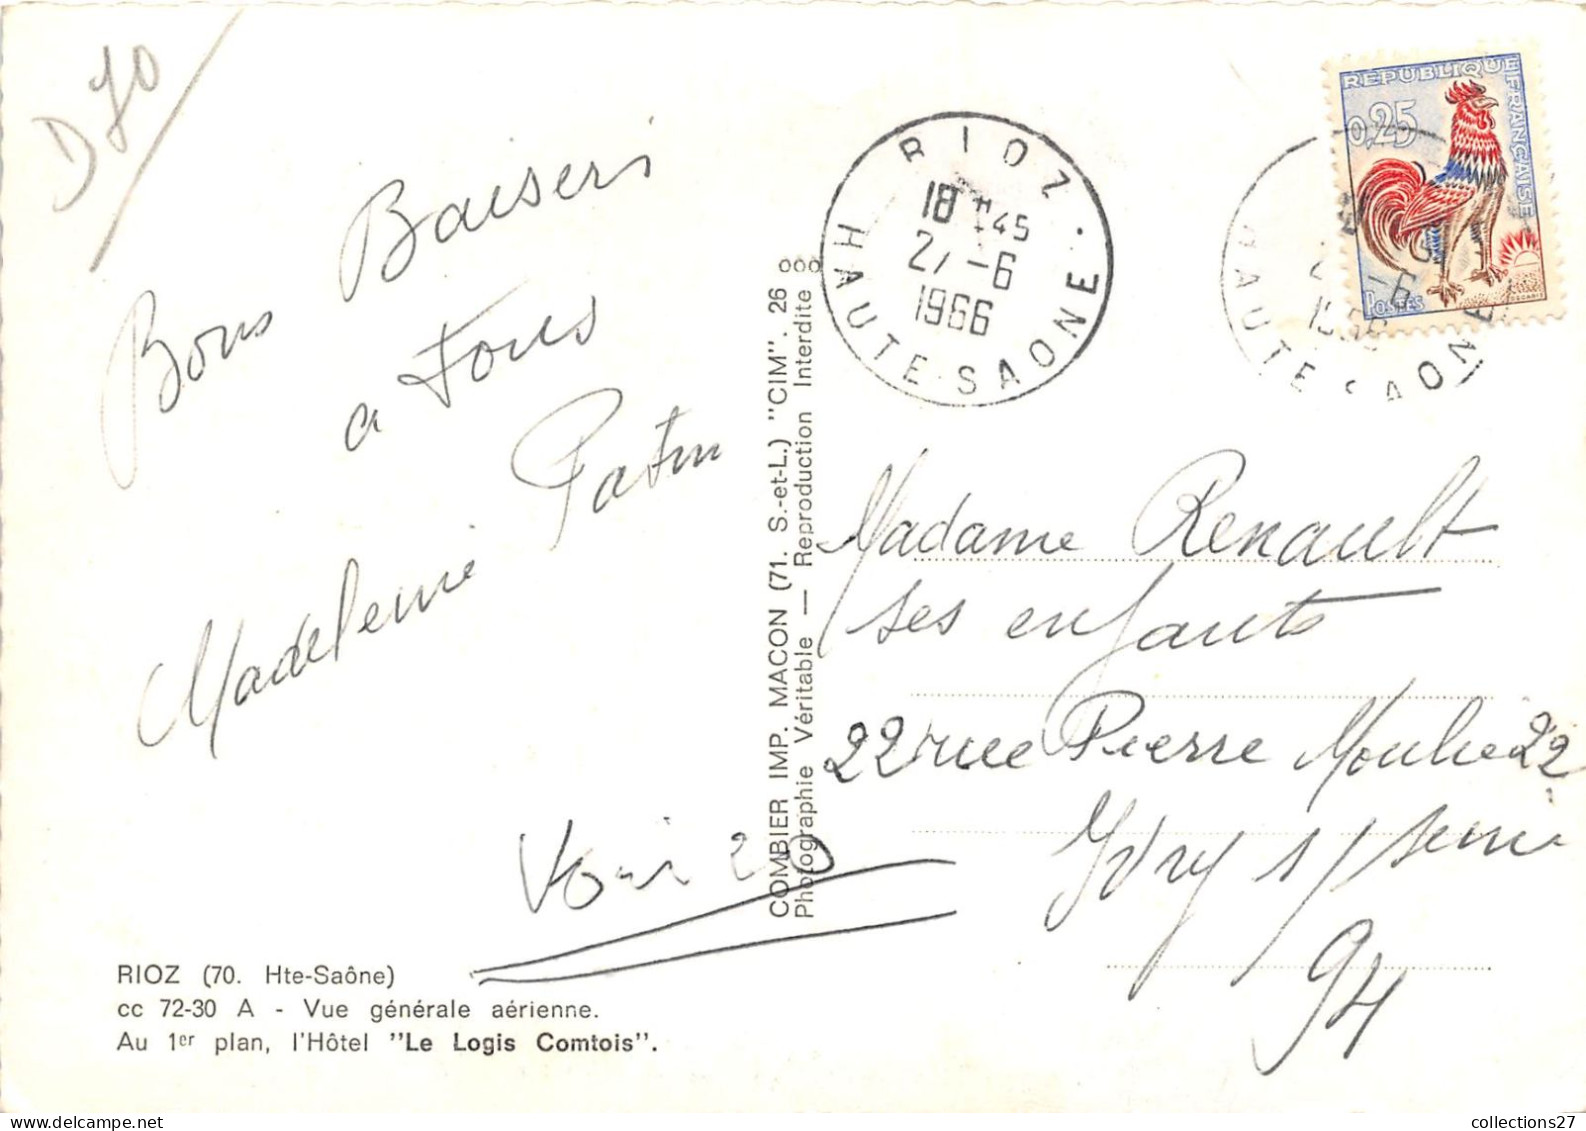 D 70
Bons Baisers
a tous
Madeleine
RIOZ (70. Hte-Saône)
cc 72-30 A - Vue générale aérienne.
Au 1er plan, l'Hôtel "Le Logis Comtois".
COMBIER IMP. MACON (71. S.-et-L.) "CIM". 26 000
Photographie Véritable — Reproduction Interdite
RIOZ
18 H45
27-6
1966
HAUTE-SAONE
REPUBLIQUE FRANÇAISE
0,25
POSTES
HAUTE SAONE
Madame Renault
ses enfants
22 rue Pierre 22
Yvry s/seine
94
collections27